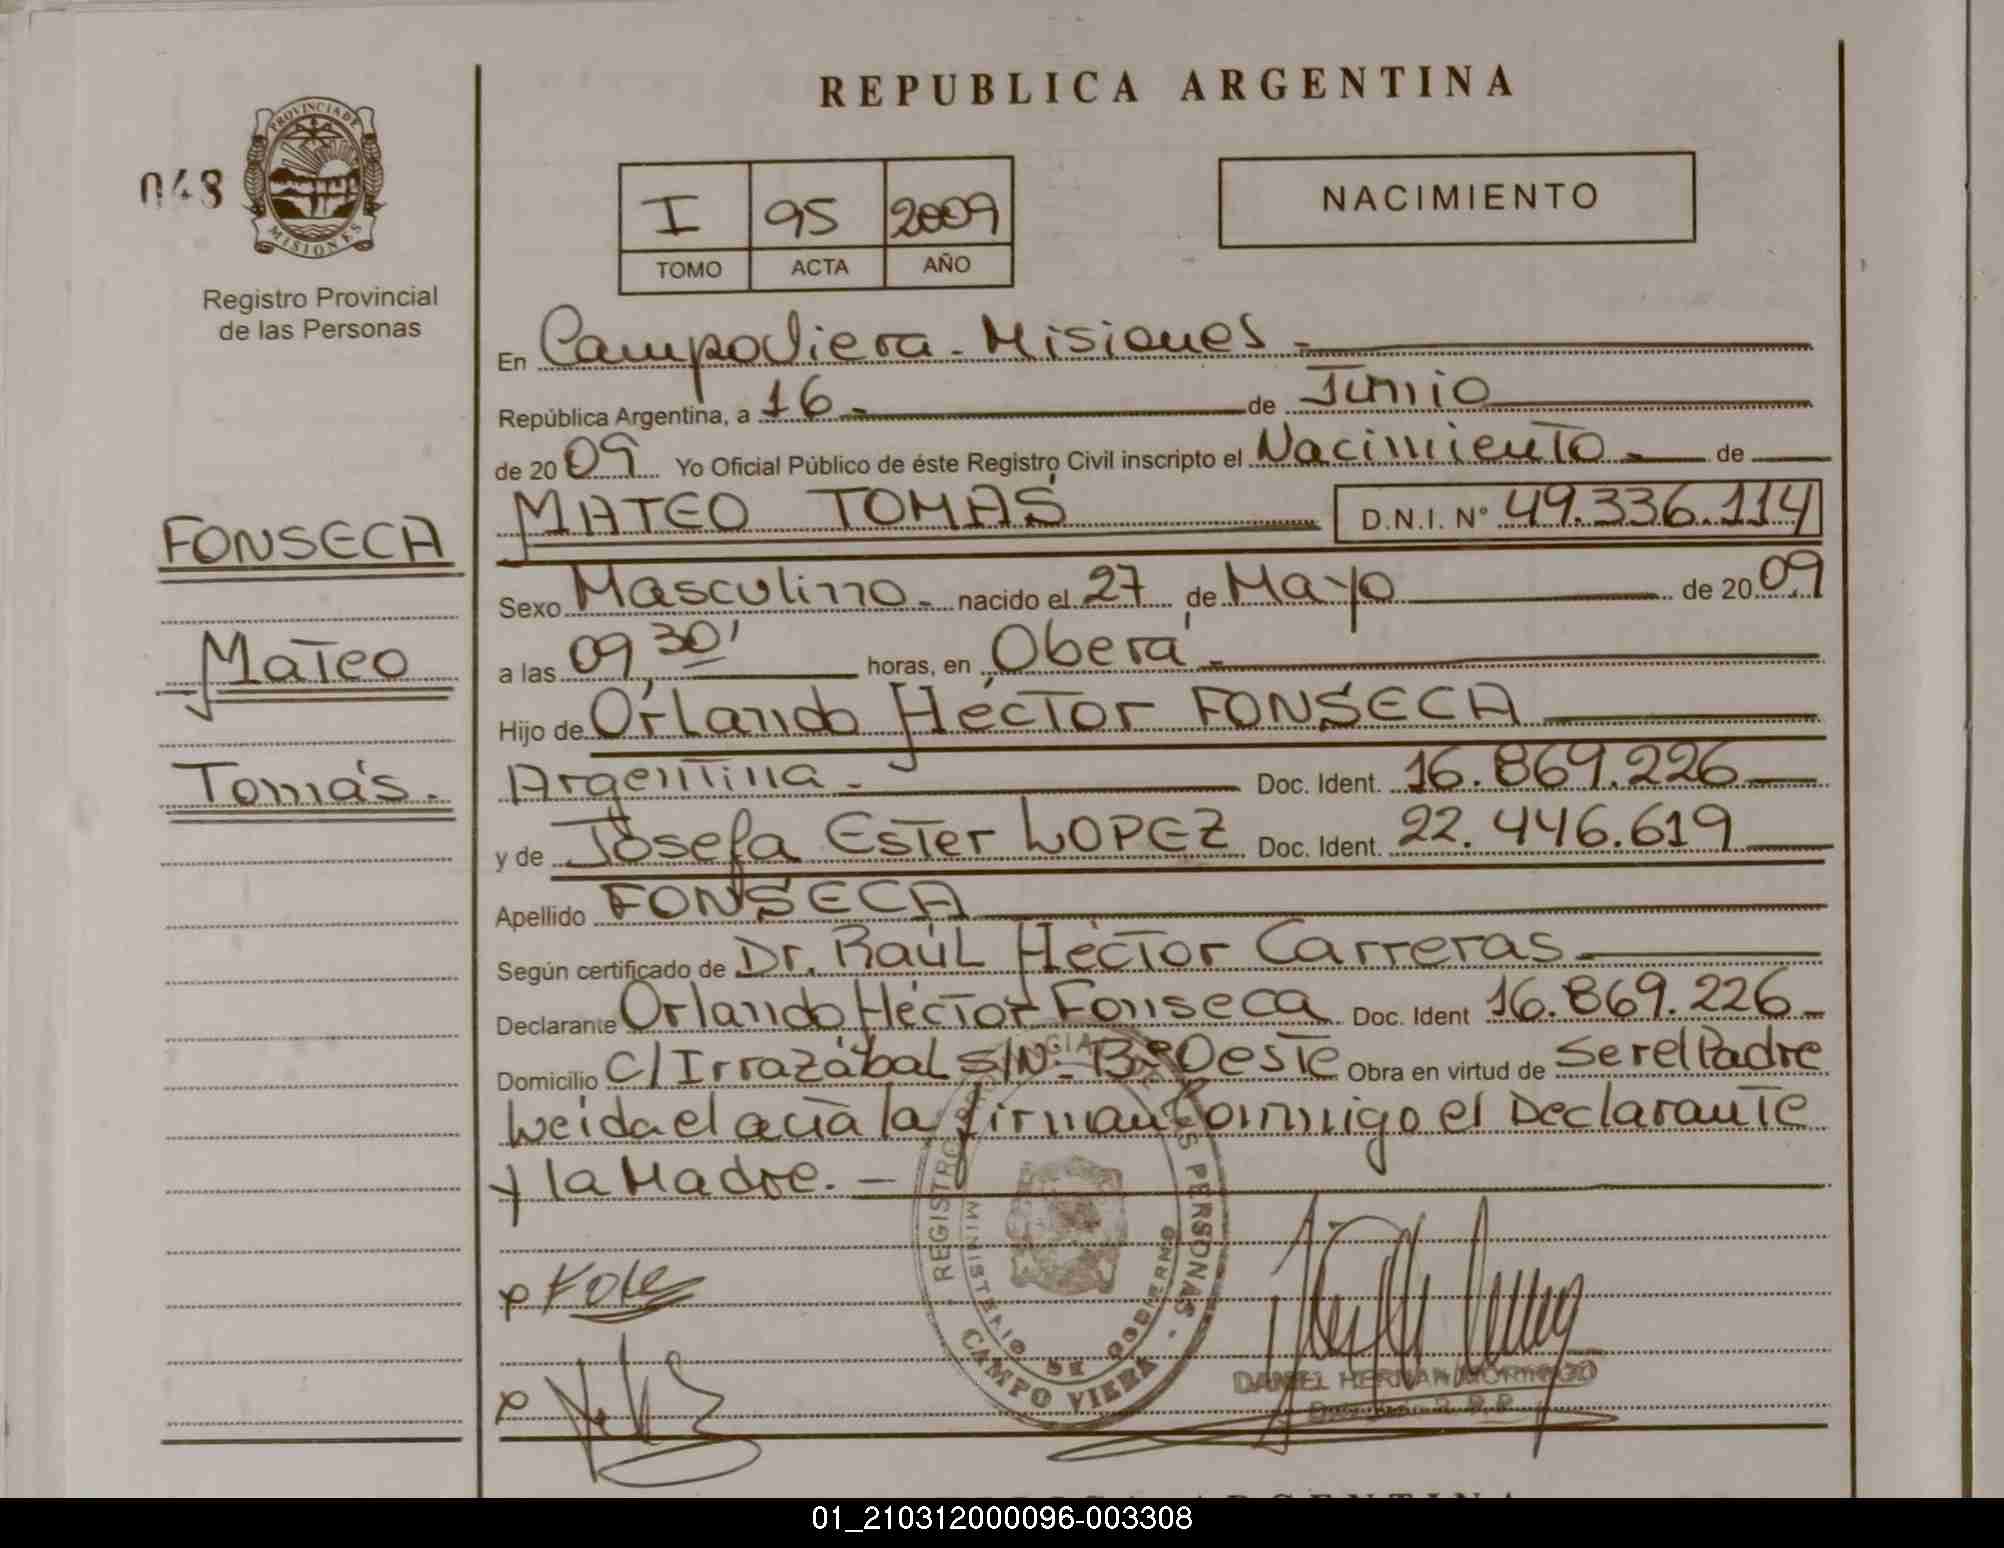 REPUBLICA ARGENTINA
048
PROVINCIA DE
MISIONES
Registro Provincial
de las Personas
I 95 2009
TOMO ACTA AÑO
NACIMIENTO
En Campo Viera - Misiones -
República Argentina, a 16 - de Junio
de 2009 Yo Oficial Público de éste Registro Civil inscripto el Nacimiento - de
MATEO TOMÁS D.N.I. N° 49.336.114
FONSECA
Mateo
Tomás.
Sexo Masculino - nacido el 27 de Mayo de 2009
a las 09,30' horas, en Oberá -
Hijo de Orlando Héctor FONSECA
Argentina - Doc. Ident. 16.869.226
y de Josefa Ester LOPEZ Doc. Ident. 22.446.619
Apellido FONSECA
Según certificado de Dr. Raúl Héctor Carreras
Declarante Orlando Héctor Fonseca Doc. Ident 16.869.226
Domicilio C/ Irrazábal S/N - B° Oeste Obra en virtud de Ser el Padre
Leida el acta la firman Conmigo el Declarante
y la Madre. -
REGISTRO PERSONAS
MINISTERIO DE GOBIERNO
CAMPO VIERA
DANIEL HERNAN
01_210312000096-003308